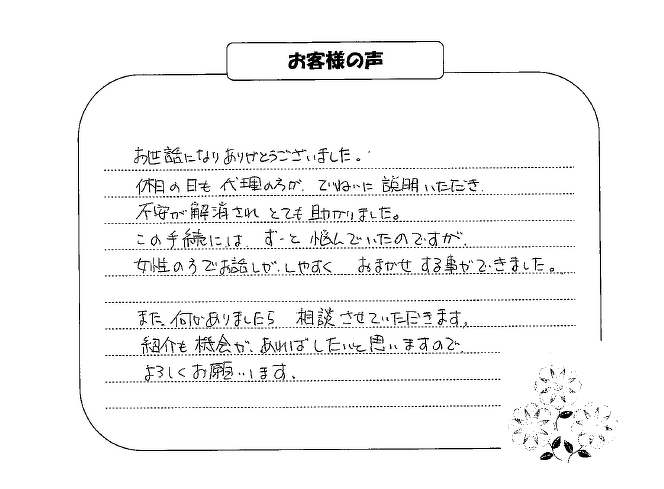 お客様の声
お世話になりありがとうございました。
休日の日も 代理の方が、ていねいに 説明いただき
不安が解消され とても助かりました。
この手続には ずーと 悩んでいたのですが、
女性の方でお話しが、しやすく おまかせ する事ができました。
また、何かありましたら 相談させていただきます。
紹介も機会が、あればしたいと思いますので
よろしくお願いします。